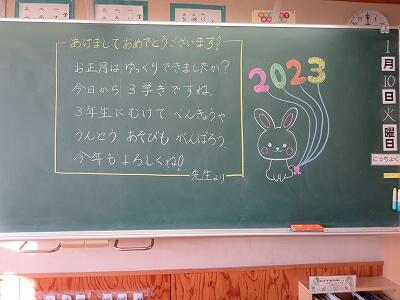 あけましておめでとうございます!
お正月は ゆっくりできましたか?
今日から 3学きですね。
3年生にむけて べんきょうや
うんどう、あそびも がんばろう。
今年も よろしくね!
先生より
2023
1月10日火曜日
にっちょく